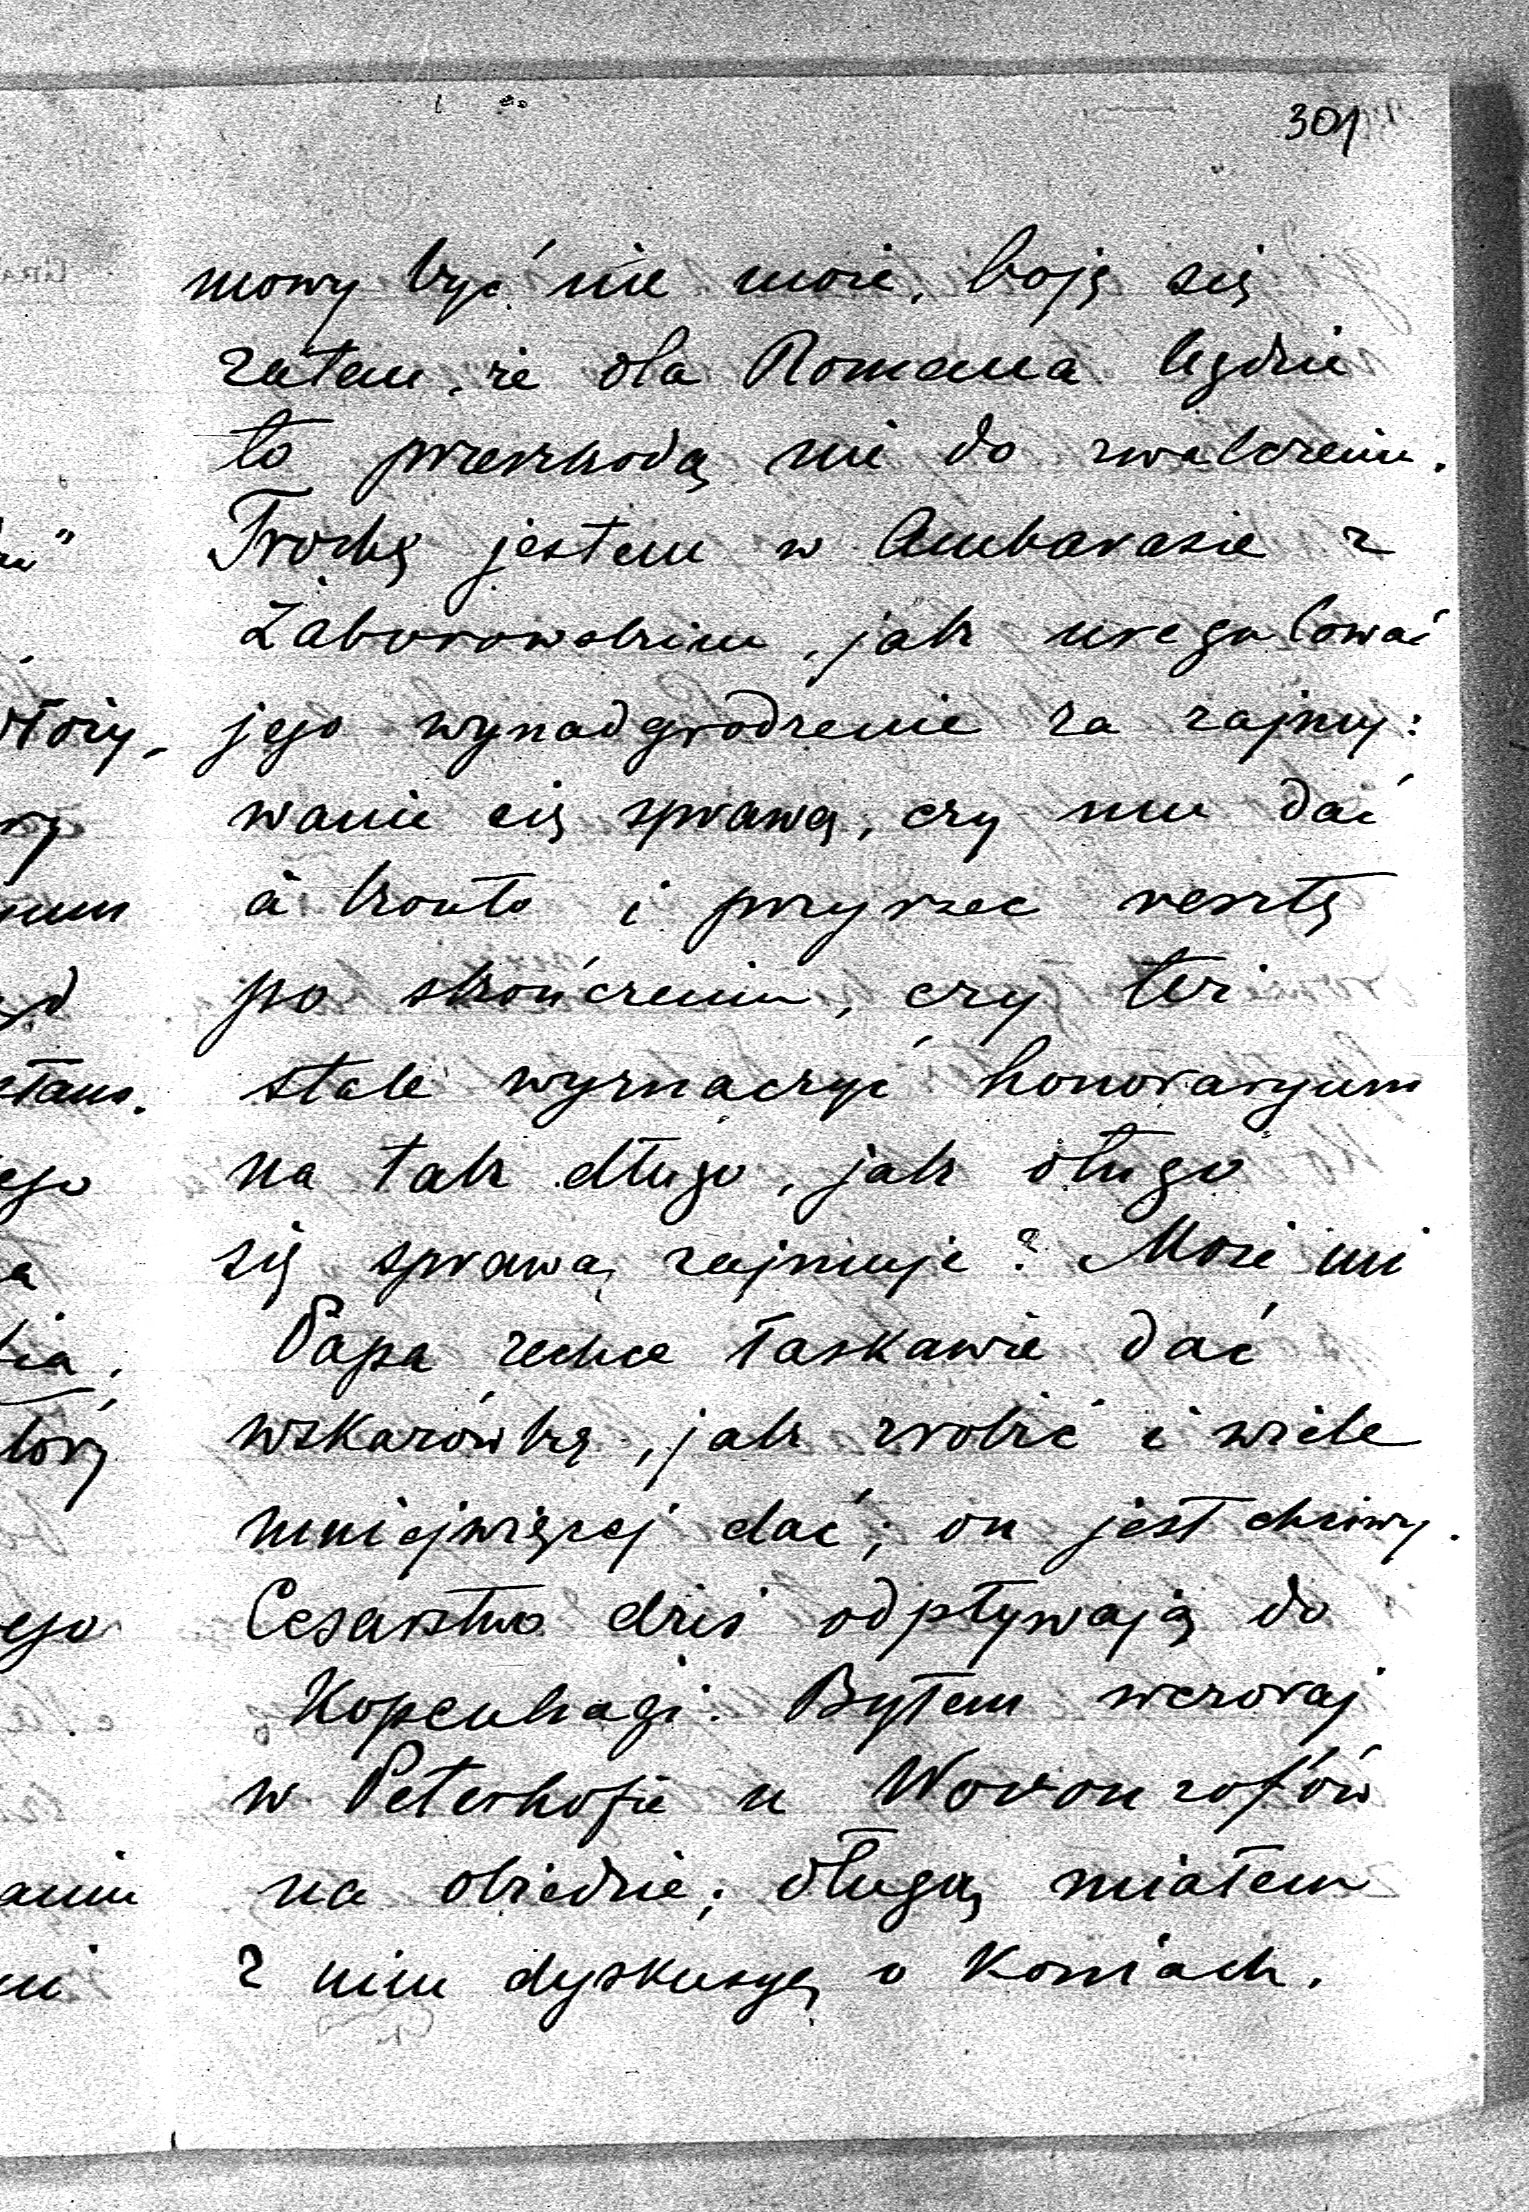 301
mowy być nie może, boję się
zatem, że dla Romana będzie
to przeszkodą nie do zwalczenia.
Trochę jestem w Ambarasie z
Zaborowskim, jak uregulować
jego wynadgrodzenie za zajmy:
wanie się sprawą, czy mu dać
à konto i przyrzec resztę
po skończeniu, czy też
stale wyznaczyć honoraryum
na tak długo, jak długo
się sprawą zajmuje? Może mi
Papa zechce łaskawie dać
wskazówkę, jak zrobić i wiele
mniejwięcej dać; on jest chciwy.
Cesarstwo dziś odpływają do
Kopenhagi. Byłem wczoraj
w Peterhofie u Woronzofów
na obiedzie; długą miałem
z nim dyskusyę o Koniach.